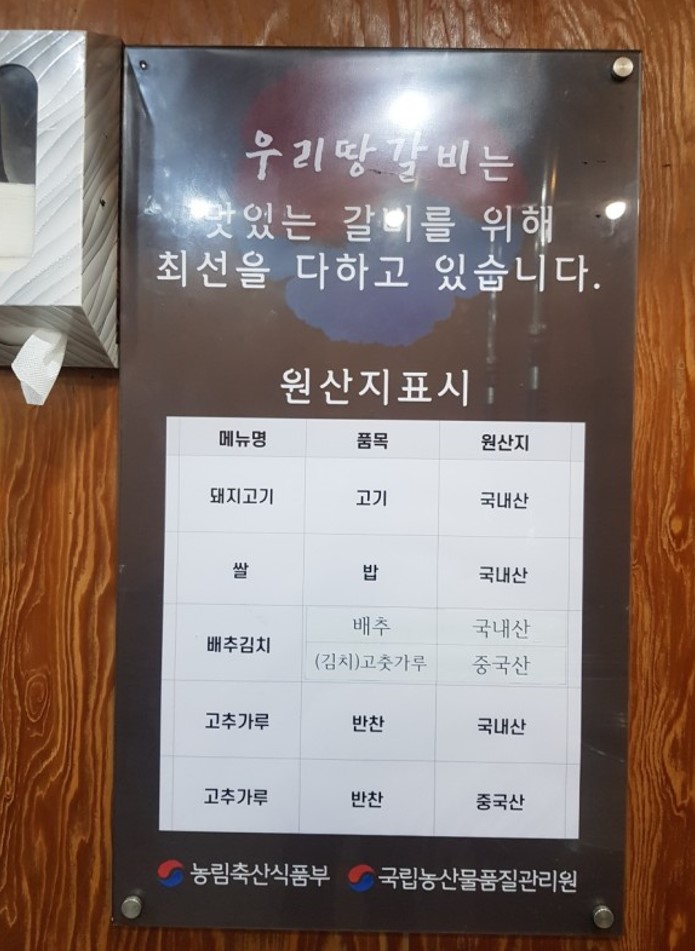 우리땅갈비는
맛있는 갈비를 위해
최선을 다하고 있습니다.
원산지표시
메뉴명 품목 원산지
돼지고기 고기 국내산
쌀 밥 국내산
배추김치 배추 국내산
(김치)고춧가루 중국산
고추가루 반찬 국내산
고추가루 반찬 중국산
농림축산식품부 국립농산물품질관리원